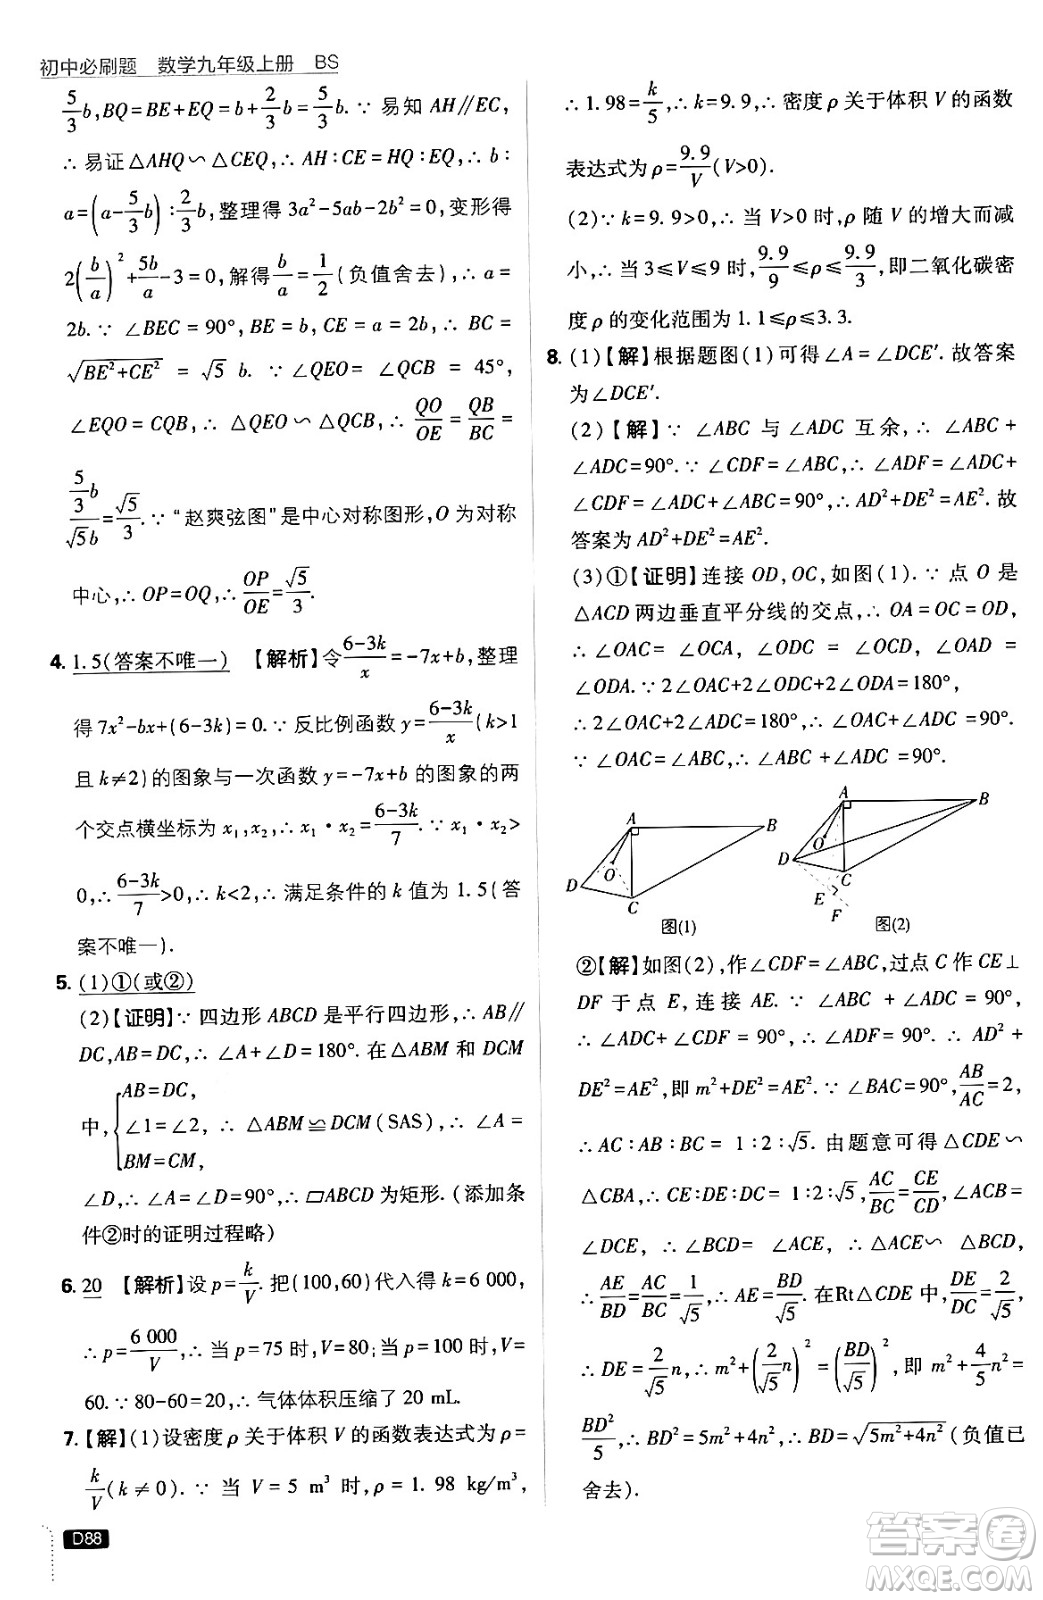 初中必刷题　数学九年级上册　BS
5/3b,BQ=BE+EQ=b+2/3b=5/3b.∵ 易知 AH∥EC,
∴ 易证△AHQ∽△CEQ,∴ AH∶CE=HQ∶EQ,∴ b∶
a=(a-5/3b)∶2/3b,整理得 3a²-5ab-2b²=0,变形得
2(b/a)²+5b/a-3=0,解得b/a=1/2(负值舍去),∴ a=
2b.∵ ∠BEC=90°,BE=b,CE=a=2b,∴ BC=
√(BE²+CE²)=√5 b.∵ ∠QEO=∠QCB=45°,
∠EQO=∠CQB,∴ △QEO∽△QCB,∴ QO/OE=QB/BC=
(5/3b)/(√5b)=√5/3.∵ “赵爽弦图”是中心对称图形,O 为对称
中心,∴ OP=OQ,∴ OP/OE=√5/3.
4. 1.5(答案不唯一)　【解析】令(6-3k)/x=-7x+b,整理
得 7x²-bx+(6-3k)=0.∵ 反比例函数 y=(6-3k)/x(k>1
且 k≠2)的图象与一次函数 y=-7x+b 的图象的两
个交点横坐标为 x₁,x₂,∴ x₁·x₂=(6-3k)/7.∵ x₁·x₂>
0,∴ (6-3k)/7>0,∴ k<2,∴ 满足条件的 k 值为 1.5(答
案不唯一).
5. (1)①(或②)
(2)【证明】∵ 四边形 ABCD 是平行四边形,∴ AB∥
DC,AB=DC,∴ ∠A+∠D=180°.在△ABM 和 DCM
中,{AB=DC,
∠1=∠2, ∴ △ABM≌DCM(SAS),∴ ∠A=
BM=CM,
∠D,∴ ∠A=∠D=90°,∴ ▱ABCD 为矩形.(添加条
件②时的证明过程略)
6. 20　【解析】设 p=k/V.把(100,60)代入得 k=6 000,
∴ p=6 000/V,∴ 当 p=75 时,V=80;当 p=100 时,V=
60.∵ 80-60=20,∴ 气体体积压缩了 20 mL.
7.【解】(1)设密度 ρ 关于体积 V 的函数表达式为 ρ=
k/V(k≠0).∵ 当 V=5 m³ 时,ρ=1.98 kg/m³,
D88
∴ 1.98=k/5,∴ k=9.9,∴ 密度 ρ 关于体积 V 的函数
表达式为 ρ=9.9/V(V>0).
(2)∵ k=9.9>0,∴ 当 V>0 时,ρ 随 V 的增大而减
小,∴ 当 3≤V≤9 时,9.9/9≤ρ≤9.9/3,即二氧化碳密
度 ρ 的变化范围为 1.1≤ρ≤3.3.
8. (1)【解】根据题图(1)可得∠A=∠DCE′.故答案
为∠DCE′.
(2)【解】∵ ∠ABC 与∠ADC 互余,∴ ∠ABC+
∠ADC=90°.∵ ∠CDF=∠ABC,∴ ∠ADF=∠ADC+
∠CDF=∠ADC+∠ABC=90°,∴ AD²+DE²=AE².故
答案为 AD²+DE²=AE².
(3)①【证明】连接 OD,OC,如图(1).∵ 点 O 是
△ACD 两边垂直平分线的交点,∴ OA=OC=OD,
∴ ∠OAC=∠OCA,∠ODC=∠OCD,∠OAD=
∠ODA.∵ 2∠OAC+2∠ODC+2∠ODA=180°,
∴ 2∠OAC+2∠ADC=180°,∴ ∠OAC+∠ADC=90°.
∵ ∠OAC=∠ABC,∴ ∠ABC+∠ADC=90°.
A
B
O
D
C
图(1)
A
B
O
D
C
E
F
图(2)
②【解】如图(2),作∠CDF=∠ABC,过点 C 作 CE⊥
DF 于点 E,连接 AE.∵ ∠ABC+∠ADC=90°,
∴ ∠ADC+∠CDF=90°,∴ ∠ADF=90°.∴ AD²+
DE²=AE²,即 m²+DE²=AE².∵ ∠BAC=90°,AB/AC=2,
∴ AC∶AB∶BC=1∶2∶√5.由题意可得△CDE∽
△CBA,∴ CE∶DE∶CD=1∶2∶√5,AC/BC=CE/CD,∠ACB=
∠DCE,∴ ∠BCD=∠ACE,∴ △ACE∽△BCD,
∴ AE/BD=AC/BC=1/√5,∴ AE=BD/√5.在Rt△CDE 中,DE/DC=2/√5,
∴ DE=2/√5 n,∴ m²+(2/√5 n)²=(BD/√5)²,即 m²+4/5n²=
BD²/5,∴ BD²=5m²+4n²,∴ BD=√(5m²+4n²)(负值已
舍去).
答案圈
MXQE.COM